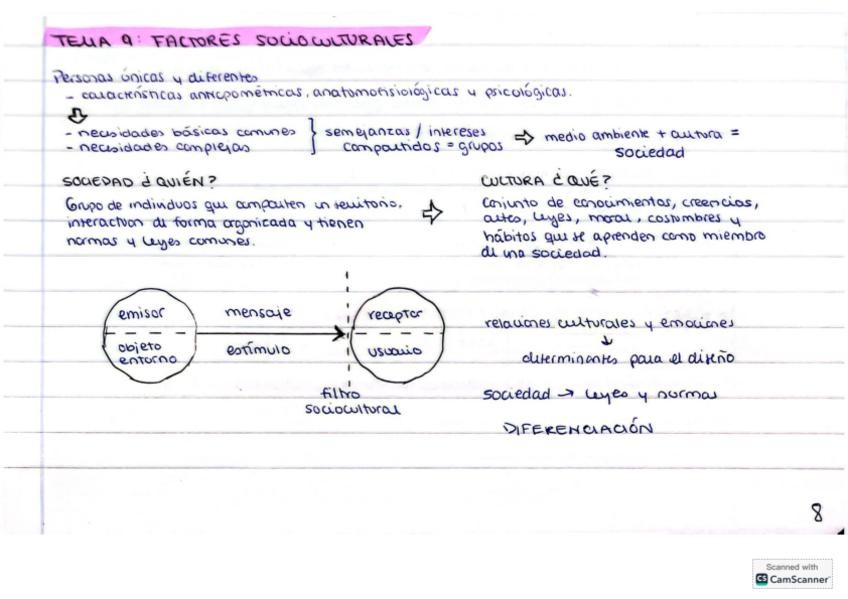 TEMA 9: FACTORES SOCIOCULTURALES
Personas únicas y diferentes
- características antropométricas, anatomofisiológicas y psicológicas.
- necesidades básicas comunes
- necesidades complejas
semejanzas / intereses
compartidos = grupos
medio ambiente + cultura =
sociedad
SOCIEDAD ¿QUIÉN?
Grupo de individuos que comparten un territorio,
interactúan de forma organizada y tienen
normas y leyes comunes.
CULTURA ¿QUÉ?
Conjunto de conocimientos, creencias,
artes, leyes, moral, costumbres y
hábitos que se aprenden como miembro
de una sociedad.
emisor
objeto
entorno
mensaje
estímulo
receptor
usuario
filtro
sociocultural
relaciones culturales y emociones
↓
determinantes para el diseño
sociedad → leyes y normas
DIFERENCIACIÓN
8
Scanned with
CS CamScanner